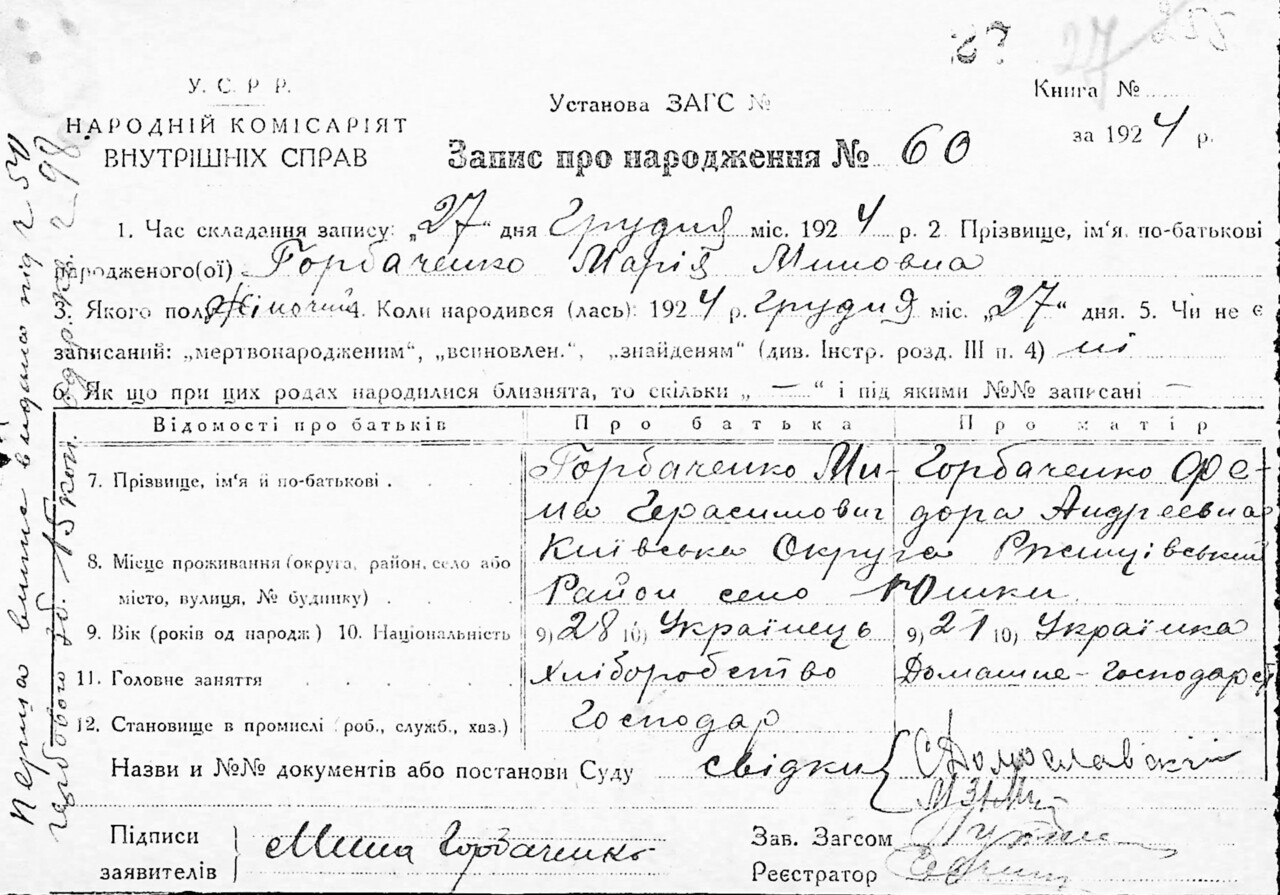 27
У. С. Р Р.
НАРОДНІЙ КОМІСАРІЯТ
ВНУТРІШНІХ СПРАВ
Установа ЗАГС №
Книга №
за 1924 р.
Запис про народження № 60
1. Час складання запису: „27“ дня Грудня міс. 1924 р. 2. Прізвище, ім'я, по-батькові
народженого(ої) Горбаченко Марія Миновна
3. Якого полу Жіночий 4. Коли народився (лась): 1924 р. Грудня міс. „27“ дня. 5. Чи не є
записаний: „мертвонародженим“, „всиновлен.“, „знайденям“ (див. Інстр. розд. III п. 4) ні
6. Як що при цих родах народилися близнята, то скільки „ — “ і під якими №№ записані —
Відомості про батьків Про батька Про матір
7. Прізвище, ім'я й по-батькові . Горбаченко Ми- Горбаченко Фе-
на Герасимович дора Андреевна
8. Місце проживання (округа, район, село або Київська Округа Ржищівський
місто, вулиця, № будинку) . . . . Район село Юшки
9. Вік (років од народж.) 10. Національність 9) 28 10) Українець 9) 21 10) Українка
11. Головне заняття . . . . . Хліборобство Домашне-господарст
12. Становище в промислі (роб., служб., хаз.) Господар
Назви и №№ документів або постанови Суду свідки { С Домославський
Підписи
заявителів } Мина Горбаченко
Зав. Загсом
Реєстратор
Перша випис видана під
гербового зб. 15 коп. одерж.